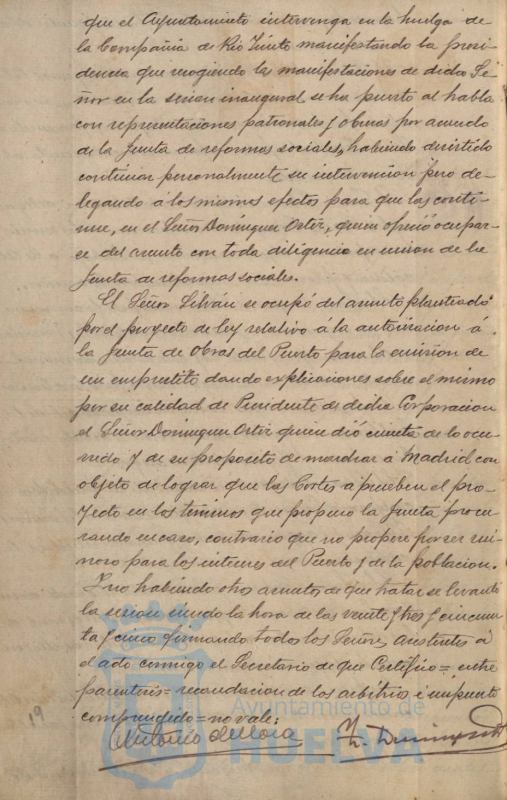 que el Ayuntamiento intervenga en la huelga de
la Compañia de Rio Tinto manifestando la presi-
dencia que recogiendo las manifestaciones de dicho Se-
ñor en la sesion inaugural se ha puesto al habla
con representaciones patronales y obreras por acuerdo
de la Junta de reformas sociales, habiendo desistido
continuar personalmente su intervencion pero de-
legando á los mismos efectos para que las conti-
nue, en el Señor Dominguez Ortiz, quien ofreció ocupar-
se del asunto con toda diligencia en union de la
Junta de reformas sociales.
El Señor Silván se ocupó del asunto planteado
por el proyecto de ley relativo á la autorizacion á
la Junta de Obras del Puerto para la emision de
un emprestito dando explicaciones sobre el mismo
por su calidad de Presidente de dicha Corporacion
el Señor Dominguez Ortiz quien dió cuenta de lo ocu-
rrido y de su proposito de marchar á Madrid con
objeto de lograr que las Cortes aprueben el pro-
yecto en los terminos que propuso la Junta procu-
rando en caso, contrario que no prospere por ser rui-
noso para los intereses del Puerto y de la poblacion.
Y no habiendo otros asuntos de que tratar se levantó
la sesion siendo la hora de las veinte y tres y cincuen-
ta y cinco firmando todos los Señores asistentes á
el acto conmigo el Secretario de que Certifico = entre
parentesis = recaudacion de los arbitrios é impuesto
comprendido = no vale:
19
Antonio de Mora
Ayuntamiento de
HUELVA